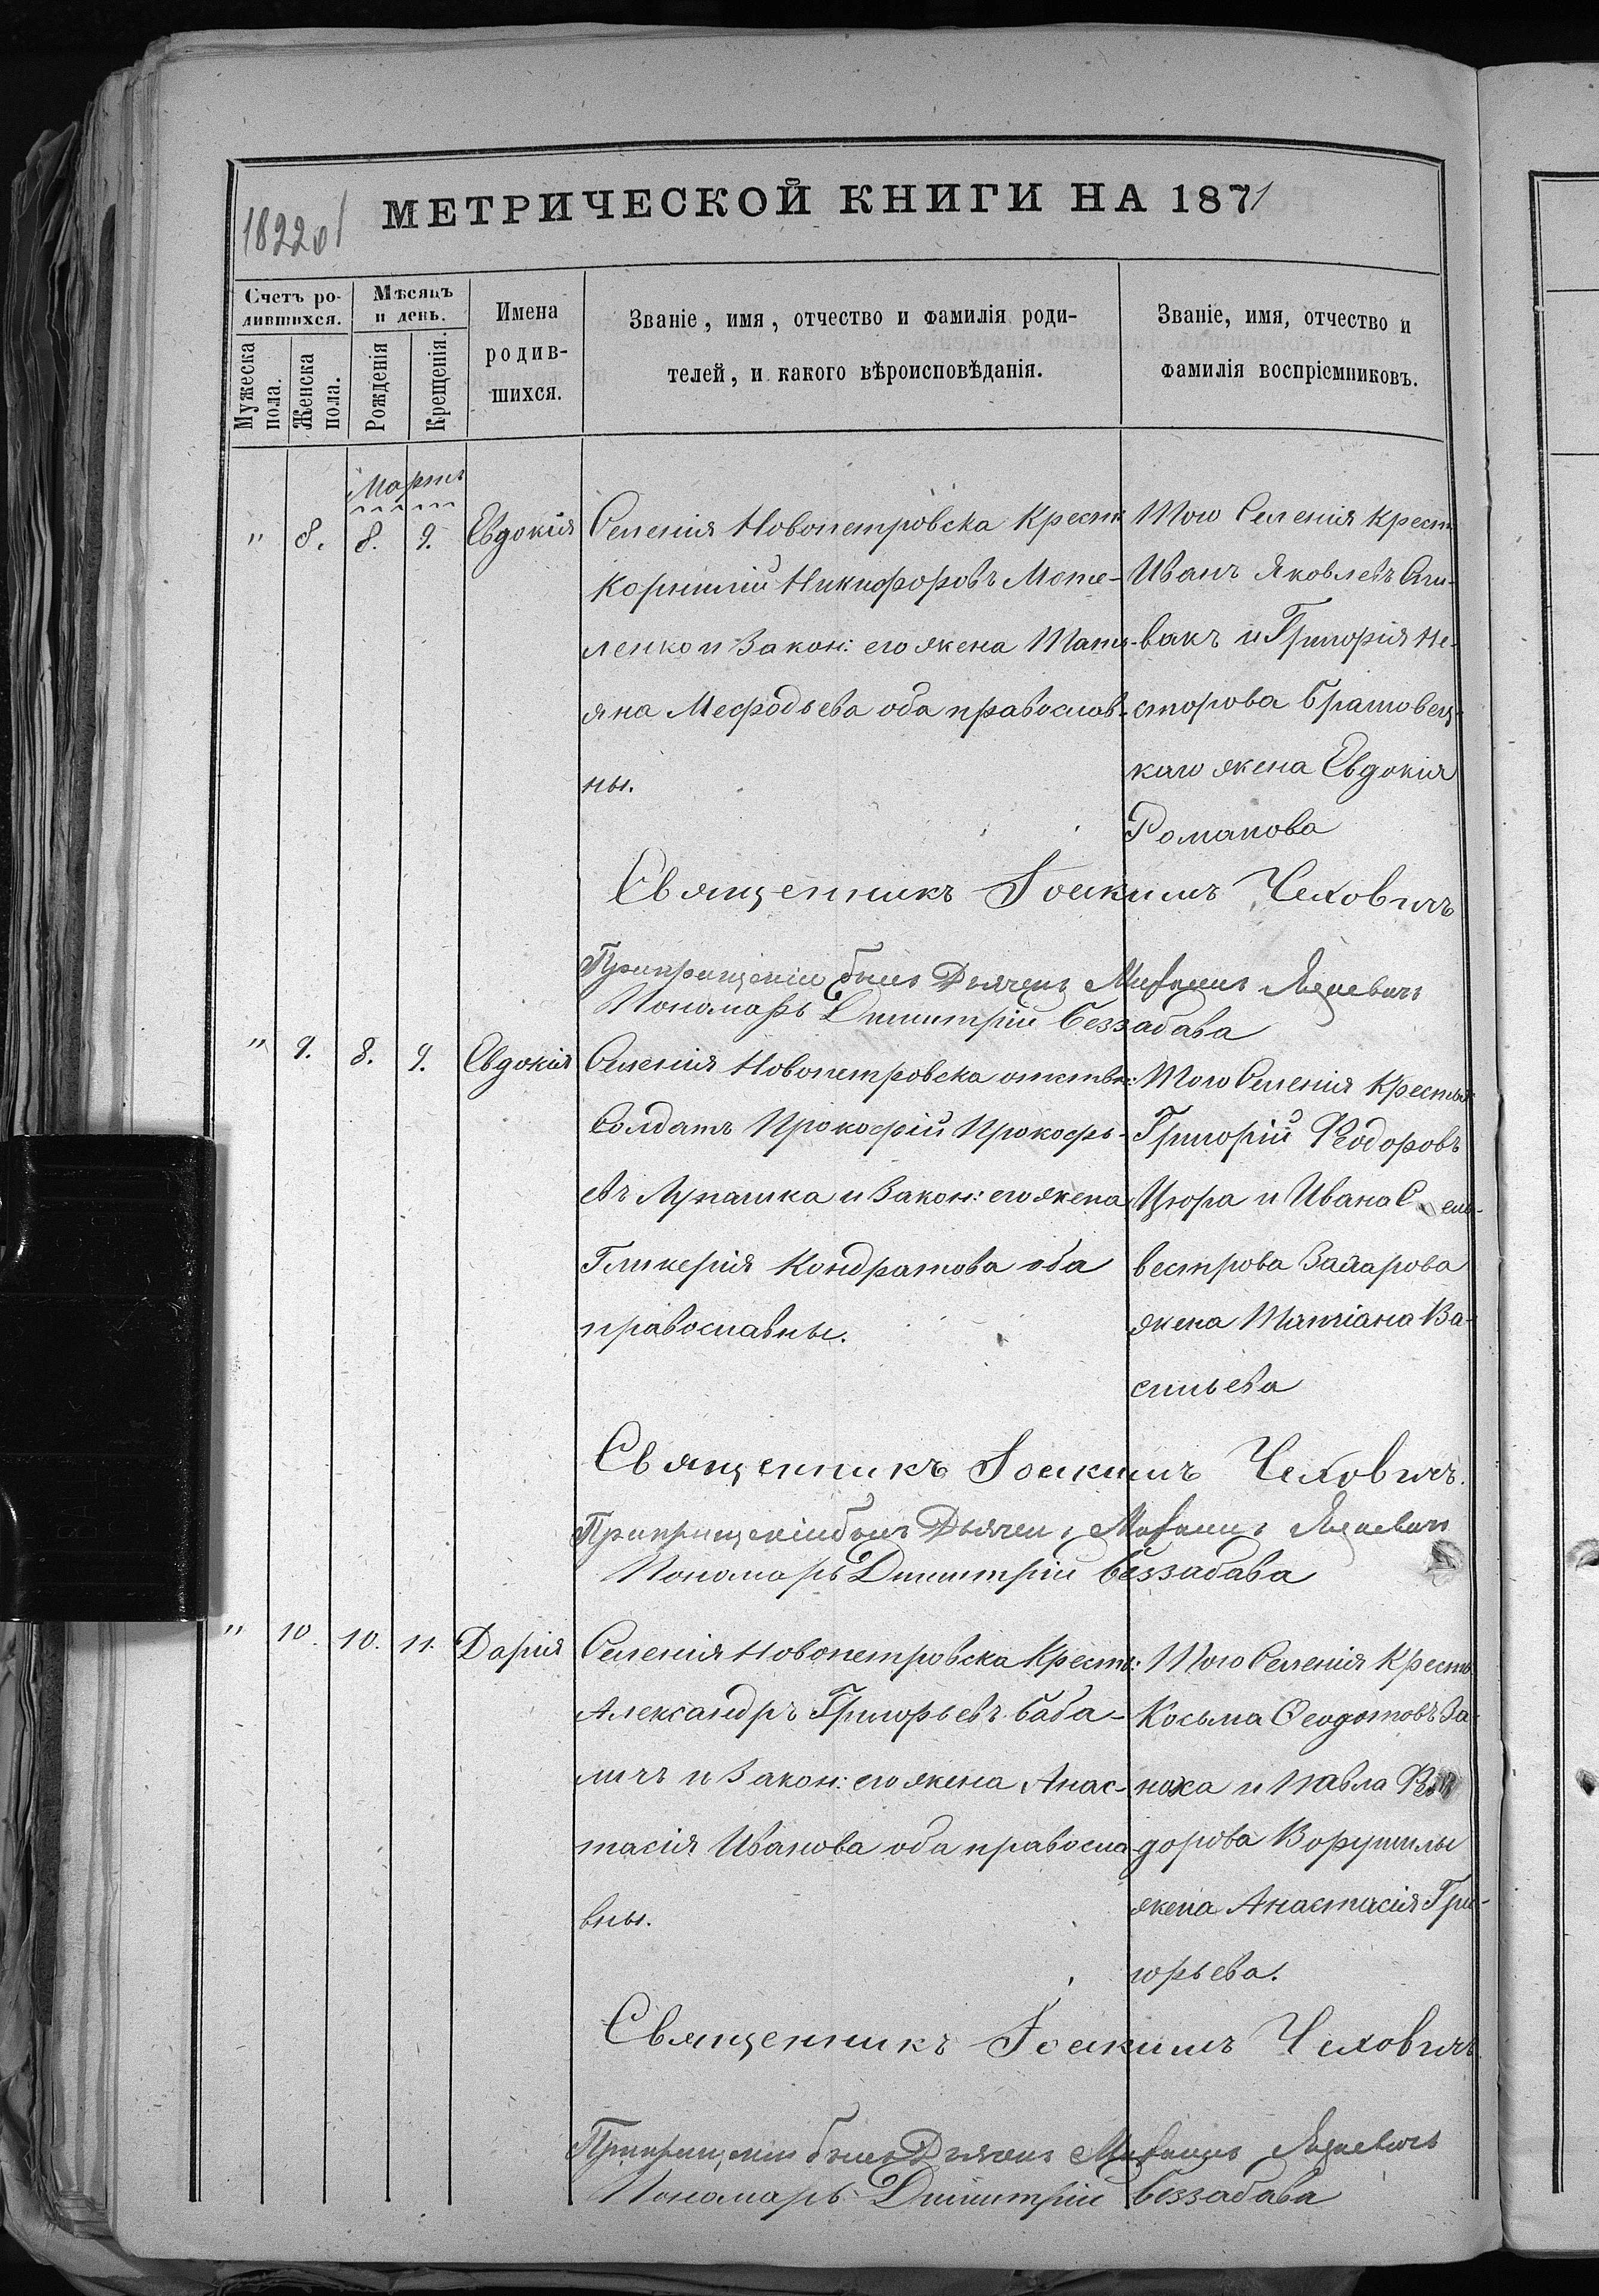 1822 об
МЕТРИЧЕСКОЙ КНИГИ НА 1871
Счетъ ро-
дившихся.
Мужеска пола.
Женска пола.
Мѣсяцъ
и день.
Рожденія
Крещенія.
Имена
родив-
шихся.
Званіе, имя, отчество и фамилія роди-
телей, и какого вѣроисповѣданія.
Званіе, имя, отчество и
фамилія воспріемниковъ.
Мартъ
" 8. 8. 9. Евдокія
Селенія Новопетровска Крест
Корнилій Никифоровъ Моте-
ленко и Закон: его жена Тати-
яна Мефодьева оба православ-
ны.
Того Селенія Крест
Иванъ Яковлевъ Спи-
вакъ и Григорія Не-
сторова Братовец-
каго жена Евдокія
Романова
Священникъ Іоакимъ Чеховичъ
При крещеніи былъ Дьячекъ Михаилъ
Пономарь Димитрій Беззабава
" 9. 8. 9. Евдокія
Селенія Новопетровска отставн:
Солдатъ Прокофій Прокофь-
евъ Лупашка и Закон: его жена
Гликерія Кондратова оба
православны.
Того Селенія Крестья
Григорій Феодоровъ
Цюра и Ивана Сель-
вестрова Захарова
жена Татіана Ва-
сильева
Священникъ Іоакимъ Чеховичъ.
При крещеніи былъ Дьячекъ Михаилъ
Пономарь Димитрій Беззабава
" 10. 10. 11. Дарія
Селенія Новопетровска Крестъ:
Александръ Григорьевъ Баба-
личъ и Закон: его жена Анас-
тасія Иванова оба правосла-
вны.
Того Селенія Кресть
Косьма Ѳеодотовъ За-
ноха и Павла Фео
дорова Ворушилы
жена Анастасія Гри-
горьева.
Священникъ Іоакимъ Чеховичъ.
При крещеніи былъ Дьячекъ Михаилъ
Пономарь Димитрій Беззабава